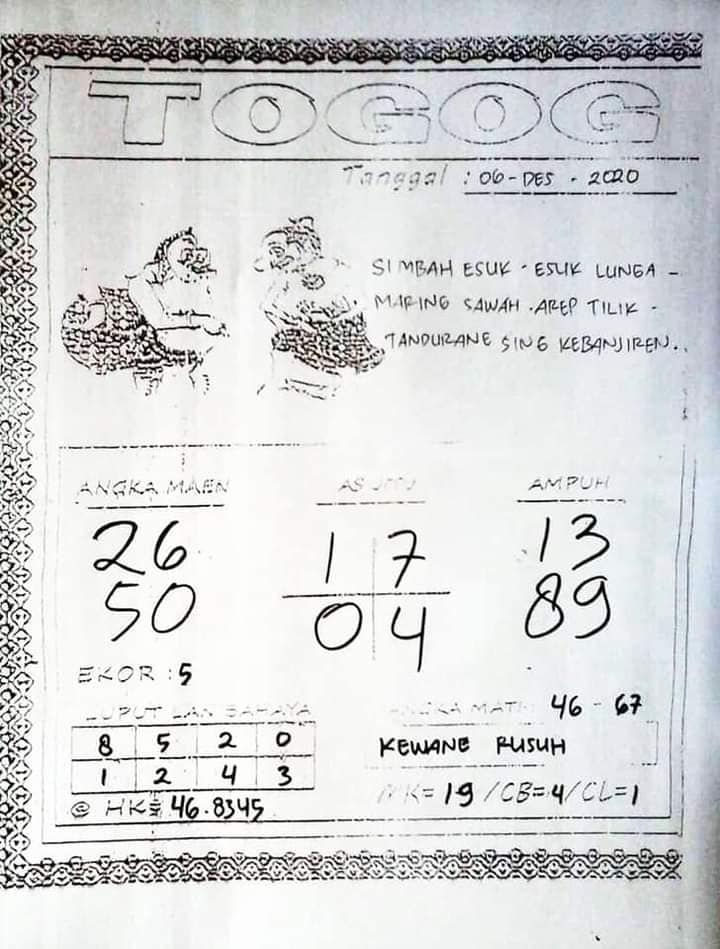 TOGOG
Tanggal : 06-DES - 2020
SIMBAH ESUK - ESUK LUNGA -
MARING SAWAH . AREP TILIK -
TANDURANE SING KEBANJIREN..
ANGKA MAEN
26
50
EKOR : 5
AS JITU
1 7
0 4
AMPUH
13
89
LUPUT LAN BAHAYA
8 5 2 0
1 2 4 3
@ HK= 46.8345
ANGKA MATI 46 - 67
KEWANE RUSUH
MK= 19 /CB=4/CL=1